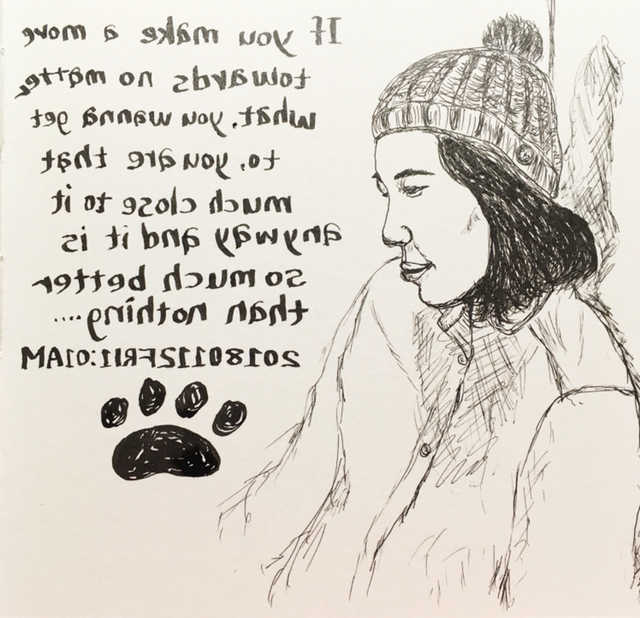 If you make a move
towards no matter
what, you wanna get
to, you are that
much close to it
anyway and it is
so much better
than nothing....
20180112FRI1:01AM